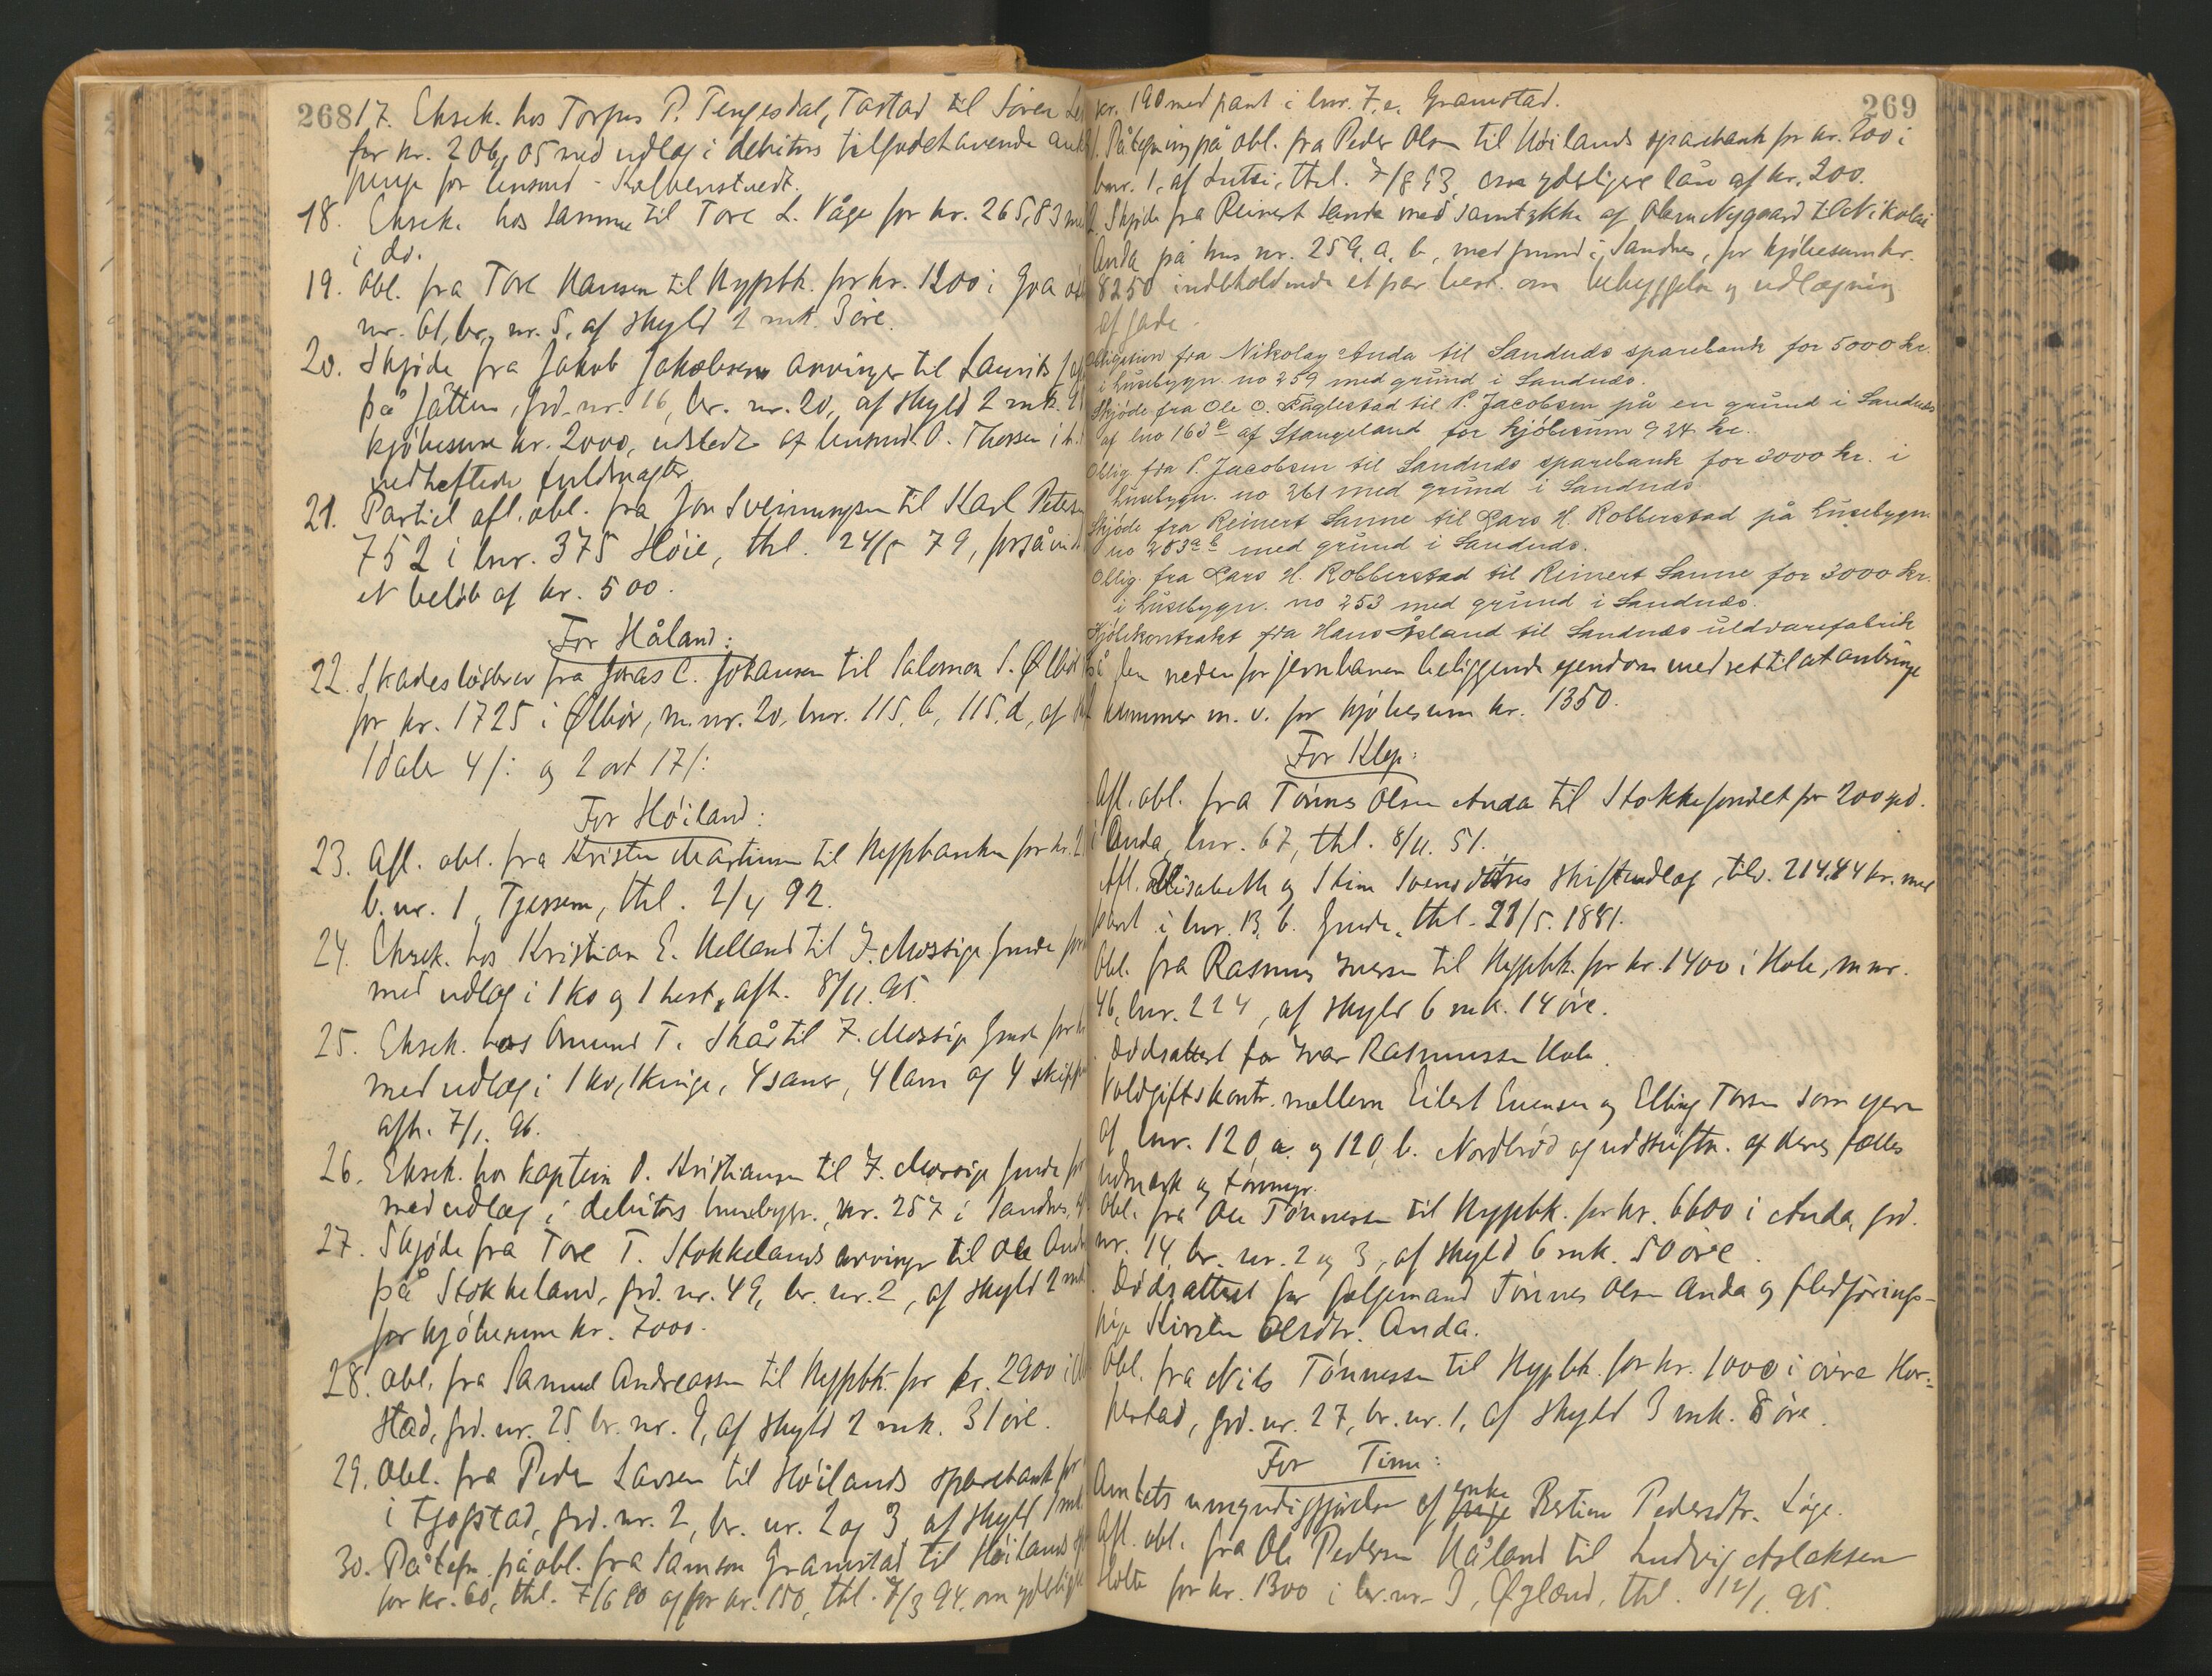 268
17. Eksek. hos Torger P. Tengesdal, Tastad til Sören
for kr. 206,05 med udlæg i debitors tilgodehavende
penge for lensmd.
18. Eksek. hos samme til Tore L. Våge for kr. 265,83
i do.
19. Obl. fra Tore Hansen til Hypbk. for kr. 1200 i
nr. 61, br. nr. 5, af skyld 2 mk. 3 öre.
20. Skjöde fra Jakob Jakobsens arvinger til Laurits
på Jåtten, grd. nr. 16, br. nr. 20, af skyld 2 mk.
kjöbesum kr. 2000, udstedt af lensmd. O. Thorsen i h.
vedheftede fuldmagter
21. Partiel afl. obl. fra Jon Sveinungsen til Karl Peters
752 i lnr. 375 Höie, thl. 24/5 79, forsåvidt
et belöb af kr. 500.
For Håland:
22. Skadeslösbrev fra Jonas C. Johansen til Salomon S. Ølbör
for kr. 1725 i Ølbör, m. nr. 20, lnr. 115, b, 115, d, af
1 daler 4 /: og 2 ort 17 /:
For Höiland:
23. Afl. obl. fra Kristen Martinsen til Hypbanken for kr. 2
b. nr. 1, Tjessem, thl. 2/4 92.
24. Eksek. hos Kristian E. Helland til F. Mossige Grude for
med udlæg i 1 ko og 1 hest, afh. 8/11. 95.
25. Eksek. hos Omund T. Skår til F. Mossige Grude for
med udlæg i 1 ko, 1 kvige, 4 sauer, 4 lam og 4 skipp
afh. 7/1. 96.
26. Eksek. hos kaptein O. Kristiansen til F. Mossige Grude for
med udlæg i debitors husebygn., nr. 257 i Sandnes,
27. Skjöde fra Tore T. Stokkelands arvinger til Ole
på Stokkeland, grd. nr. 49, br. nr. 2, af skyld 2 mk.
for kjöbesum kr. 7000.
28. Obl. fra Samuel Andreassen til Hypbk. for kr. 2900 i
stad, grd. nr. 25 br. nr. 9, af skyld 2 mk. 31 öre.
29. Obl. fra Peder Larsen til Höilands sparebank for
i Tjogstad, grd. nr. 2, br. nr. 2 og 3 af skyld 1 mk.
30. Påtegn. på obl. fra Samson Gramstad til Höilands
for kr. 60, thl. 7/6 90 og for kr. 150, thl. 7/3 94. om yderligere
269
kr. 190 med pant i lnr. 7, a. Gramstad.
Påtegning på obl. fra Peder Olsen til Höilands sparebank for kr. 200 i
bnr. 1, af Lutsi, thl. 7/8 93, om yderligere lån af kr. 200.
Skjöde fra Reinert Sanne med samtykke af Olsen Nygaard til Nikolai
Anda på hus nr. 259, a, b, med grund i Sandnes, for kjöbesum kr.
8250 indeholdende et par best. om bebyggelse og udlægning
af gade.
Obligation fra Nikolay Anda til Sandnæs sparebank for 5000 kr.
i husebygn. no 259 med grund i Sandnæs.
Skjöde fra Ole O. Fuglestad til P. Jacobsen på en grund i Sandnæs
af lno 163e af Stangeland for kjöbesum 924 kr.
Oblig. fra P. Jacobsen til Sandnæs sparebank for 3000 kr. i
husebygn. no 261 med grund i Sandnæs
Skjöde fra Reinert Sanne til Lars H. Robberstad på husebygn
no 253 a b med grund i Sandnæs.
Oblig. fra Lars H. Robberstad til Reinert Sanne for 3000 kr.
i husebygn. no 253 med grund i Sandnæs.
Kjöbekontrakt fra Hans Åsland til Sandnæs uldvarefabrik
på den neden for jernbanen beliggende ejendom med ret til at anbringe
kummer m. v. for kjöbesum kr. 1350.
For Klep:
Afl. obl. fra Tönnes Olsen Anda til Stokkefondet for 200 spd.
i Anda, lnr. 67, thl. 8/11. 51.
Afl. Elisabeth og Stine Svensdöttres skifteudlæg, tils. 214,84 kr. med
pant i lnr. 13, b. Grude, thl. 21/5. 1881.
Obl. fra Rasmus Iversen til Hypbk. for kr. 1400 i Hole, m. nr.
46, lnr. 224, af skyld 6 mk. 14 öre.
Dödsattest for Ivar Rasmussen Hole
Voldgiftskontr. mellem Eilert Evensen og Elling Torsen som ejere
af lnr. 120 a. og 120, b. Nordbrö og udskiftn. af deres fælles
udmark og torvmyr.
Obl. fra Ole Tönnessen til Hypbk. for kr. 6600 i Anda, grd.
nr. 14 br. nr. 2 og 3, af skyld 6 mk. 50 öre.
Dödsattest for fölgemand Tönnes Olsen Anda og fledförings-
pige Kirsten Olsdtr. Anda.
Obl. fra Nils Tönnessen til Hypbk. for kr. 1000 i övre Hor-
pestad, grd. nr. 27, br. nr. 1, af skyld 3 mk. 8 öre.
For Time:
Amtets umyndiggjörelse af enke Bertine Pedersdtr. Löge.
Afl. obl. fra Ole Pedersen Håland til Ludvig Aslaksen
Holte for kr. 1300 i br. nr. 9, Øgland, thl. 12/1. 95.